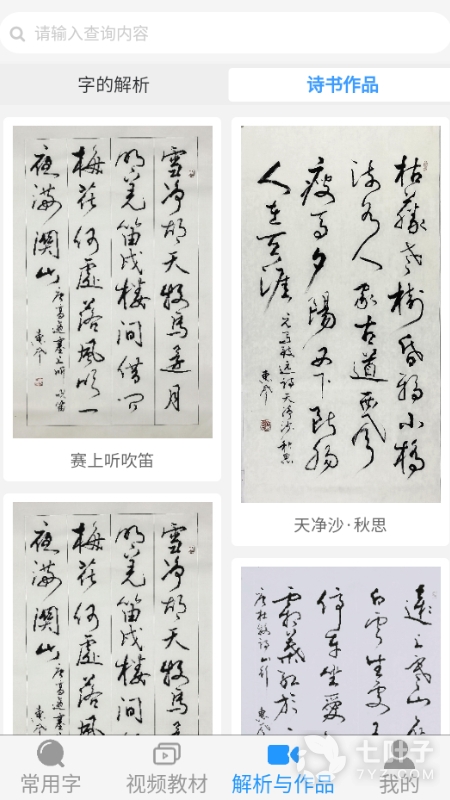 请输入查询内容
字的解析
诗书作品
雪净胡天牧马还月
明羌笛戍楼间借问
梅花何处落风吹一
夜满关山
唐高适塞上听吹笛
赛上听吹笛
枯藤老树昏鸦小桥
流水人家古道西风
瘦马夕阳西下断肠
人在天涯
元马致远词天净沙 秋思
天净沙·秋思
雪净胡天牧马还月
明羌笛戍楼间借
梅花何处落风
夜满关山
远上寒山
白云生处
停车坐爱
霜叶红于
唐杜牧诗山行
常用字
视频教材
解析与作品
我的
七叶子
7YZ.COM